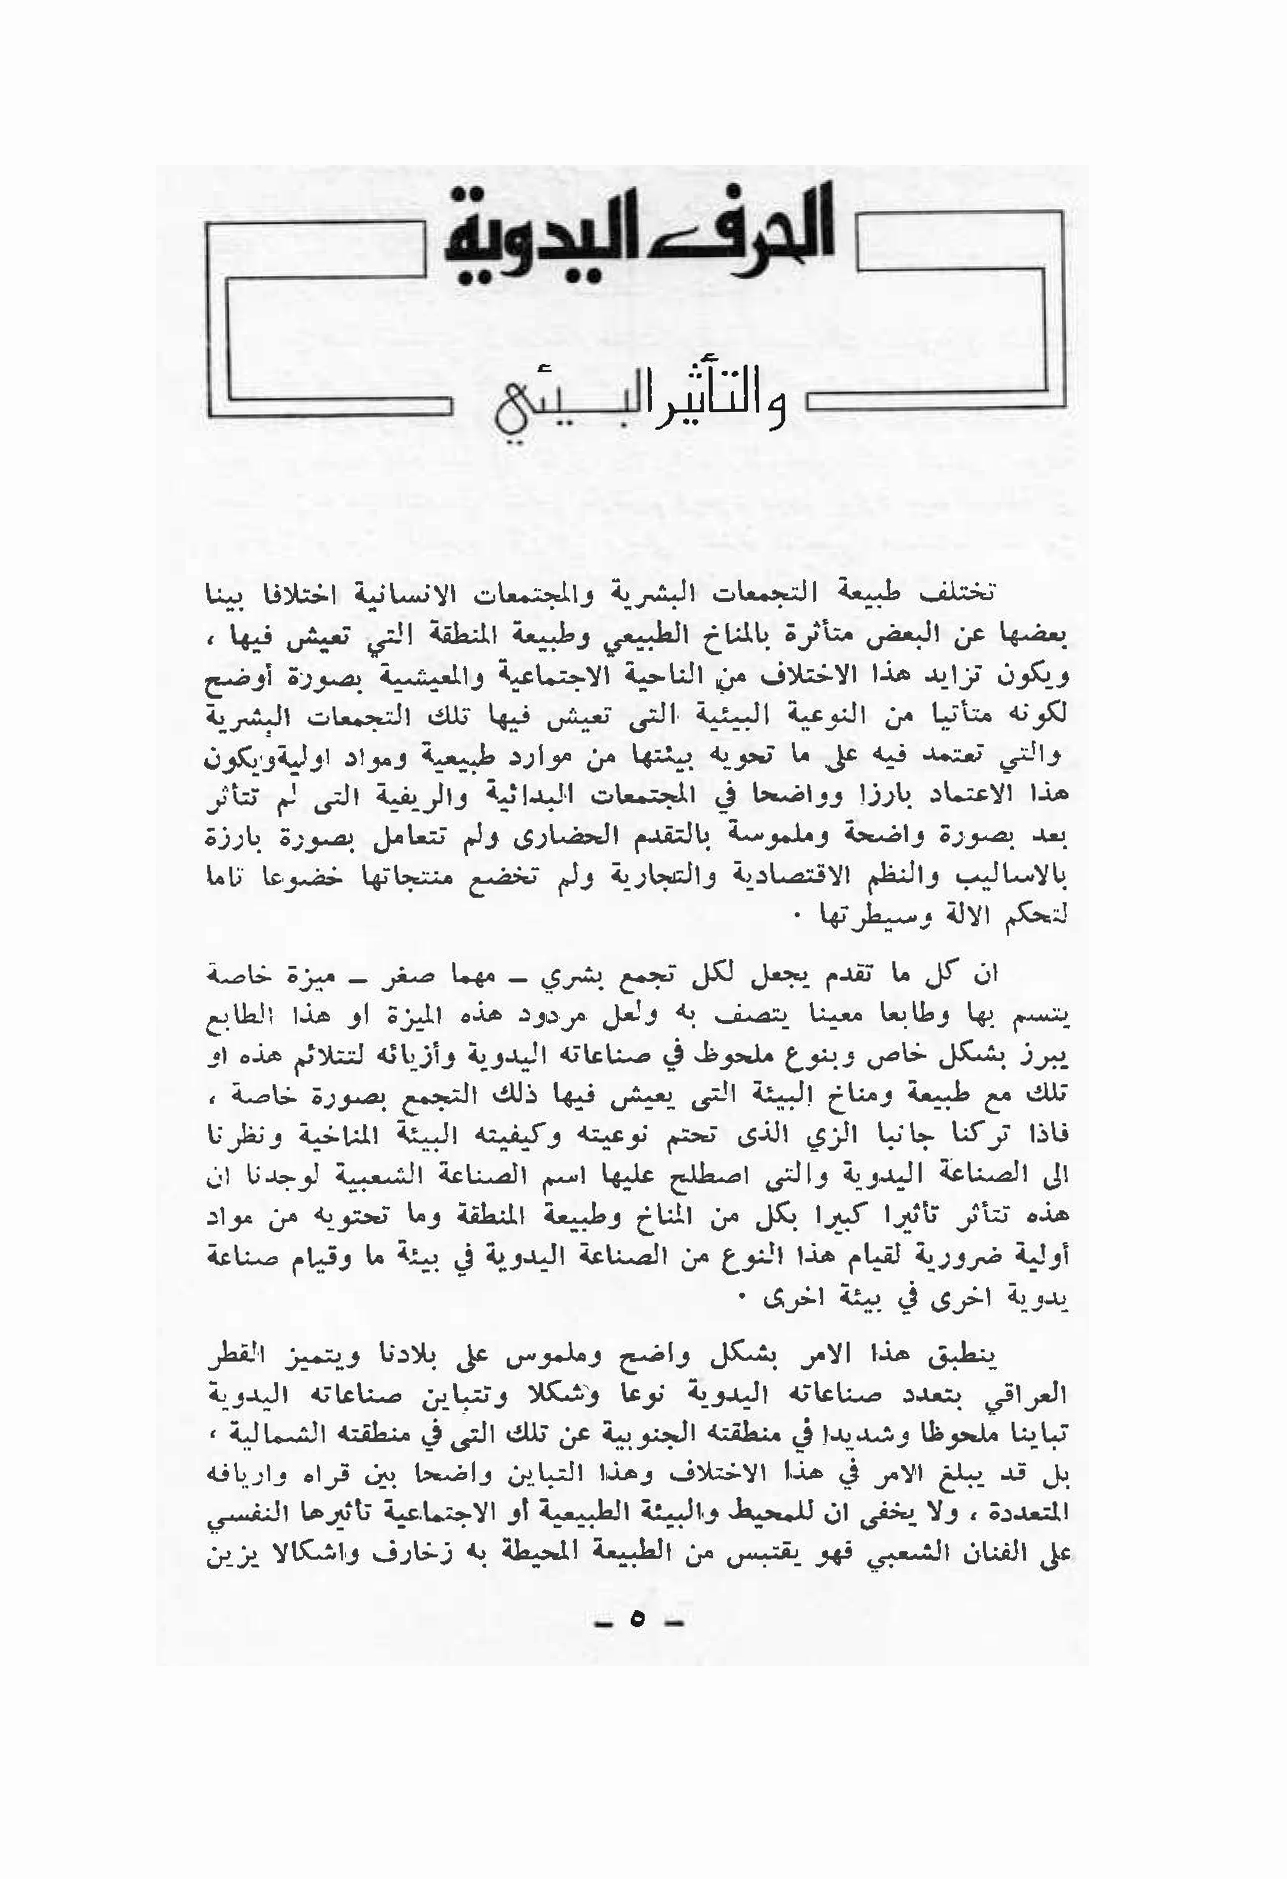 الحرف اليدوية
والتأثير البيئي
تختلف طبيعة التجمعات البشرية والمجتمعات الانسانية اختلافا بينا
بعضها عن البعض متأثرة بالمناخ الطبيعي وطبيعة المنطقة التي تعيش فيها ،
ويكون تزايد هذا الاختلاف من الناحية الاجتماعية والمعيشية بصورة أوضح
لكونه متأتيا من النوعية البيئية التى تعيش فيها تلك التجمعات البشرية
والتي تعتمد فيه على ما تحويه بيئتها من موارد طبيعية ومواد اولية ويكون
هذا الاعتماد بارزا وواضحا في المجتمعات البدائية والريفية التى لم تتأثر
بعد بصورة واضحة وملموسة بالتقدم الحضارى ولم تتعامل بصورة بارزة
بالاساليب والنظم الاقتصادية والتجارية ولم تخضع منتجاتها خضوعا تاما
لتحكم الالة وسيطرتها .
ان كل ما تقدم يجعل لكل تجمع بشري – مهما صغر – ميزة خاصة
يتسم بها وطابعا معينا يتصف به ولعل مردود هذه الميزة او هذا الطابع
يبرز بشكل خاص وبنوع ملحوظ في صناعاته اليدوية وأزيائه لتتلائم هذه او
تلك مع طبيعة ومناخ البيئة التى يعيش فيها ذلك التجمع بصورة خاصة ،
فاذا تركنا جانبا الزي الذى تحتم نوعيته وكيفيته البيئة المناخية ونظرنا
الى الصناعة اليدوية والتى اصطلح عليها اسم الصناعة الشعبية لوجدنا ان
هذه تتأثر تأثيرا كبيرا بكل من المناخ وطبيعة المنطقة وما تحتويه من مواد
أولية ضرورية لقيام هذا النوع من الصناعة اليدوية في بيئة ما وقيام صناعة
يدوية اخرى في بيئة اخرى .
ينطبق هذا الامر بشكل واضح وملموس على بلادنا ويتميز القطر
العراقي بتعدد صناعاته اليدوية نوعا وشكلا وتتباين صناعاته اليدوية
تباينا ملحوظا وشديدا في منطقته الجنوبية عن تلك التى في منطقته الشمالية ،
بل قد يبلغ الامر في هذا الاختلاف وهذا التباين واضحا بين قراه واريافه
المتعددة ، ولا يخفى ان للمحيط والبيئة الطبيعية أو الاجتماعية تأثيرها النفسي
على الفنان الشعبي فهو يقتبس من الطبيعة المحيطة به زخارف واشكالا يزين
– ٥ –